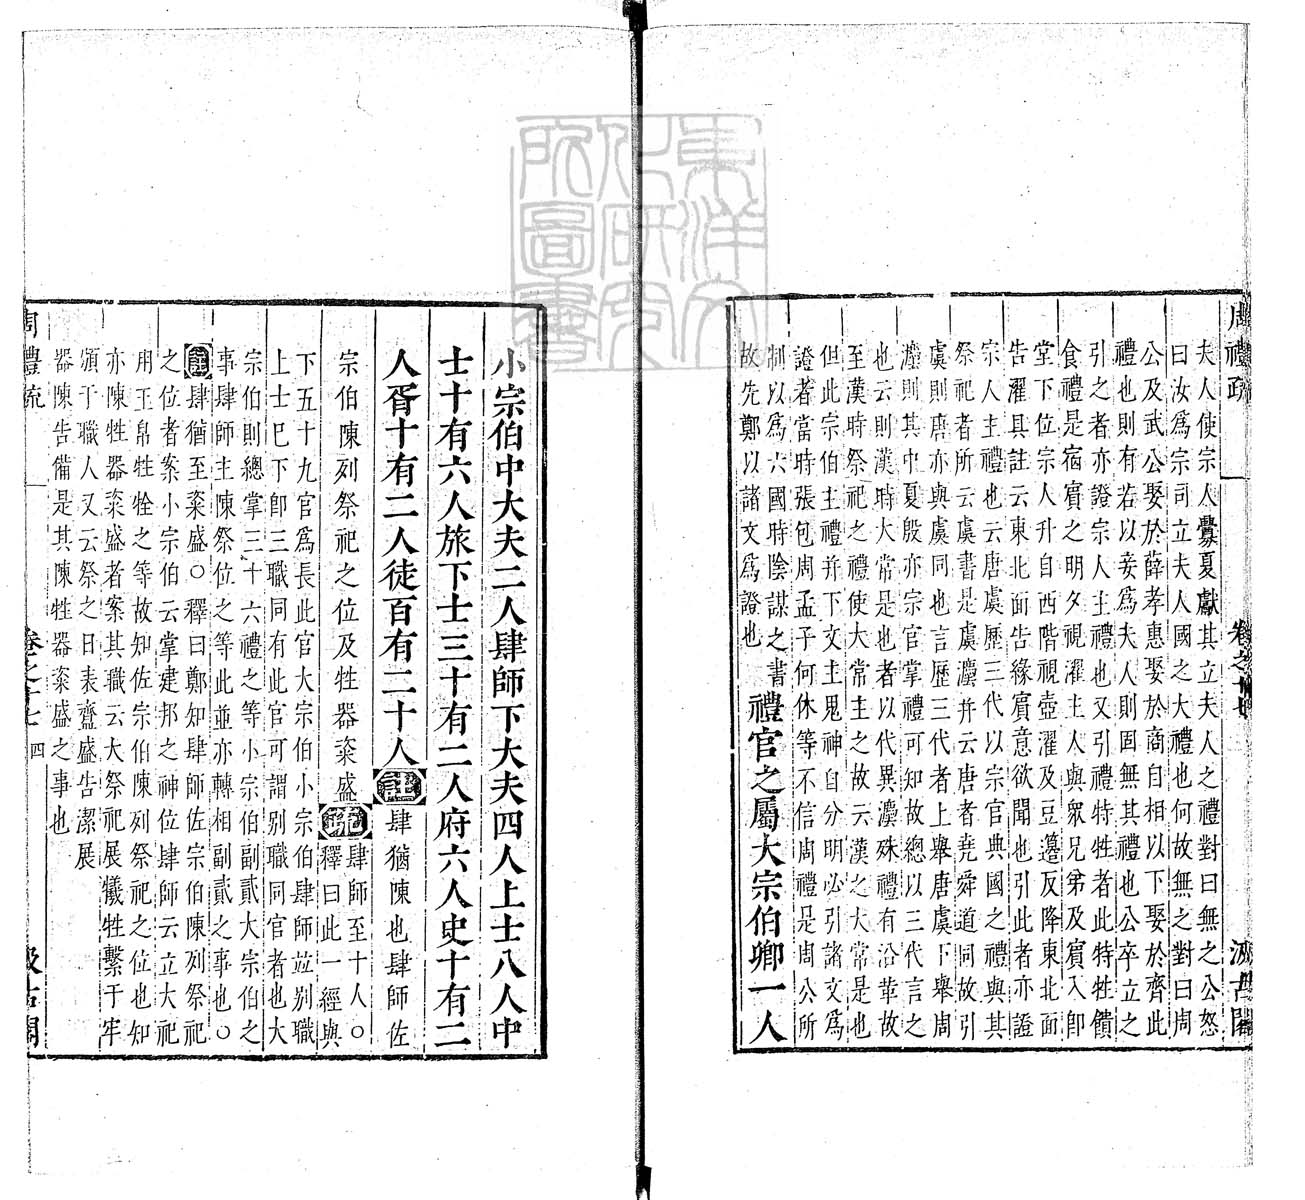 周禮疏 卷之十七 汲古閣
夫人使宗人釁夏獻其立夫人之禮對曰無之公怒
曰汝爲宗司立夫人國之大禮也何故無之對曰周
公及武公娶於薛孝惠娶於商自相以下娶於齊此
禮也則有若以妾爲夫人則固無其禮也公卒立之
引之者亦證宗人主禮也又引禮特牲者此特牲饋
食禮是宿賓之明夕視濯主人與衆兄弟及賓入卽
堂下位宗人升自西階視壺濯及豆籩反降東北面
告濯具註云東北面告緣賓意欲聞也引此者亦證
宗人主禮也云唐虞歷三代以宗官典國之禮與其
祭祀者所云虞書是虞灋并云唐者堯舜道同故引
虞則唐亦與虞同也言歷三代者上舉唐虞下舉周
灋則其中夏殷亦宗官掌禮可知故總以三代言之
也云則漢時大常是也者以代異灋殊禮有沿革故
至漢時祭祀之禮使大常主之故云漢之大常是也
但此宗伯主禮并下文主鬼神自分明必引諸文爲
證者當時張包周孟子何休等不信周禮是周公所
制以爲六國時陰謀之書
故先鄭以諸文爲證也
禮官之屬大宗伯卿一人
小宗伯中大夫二人肆師下大夫四人上士八人中
士十有六人旅下士三十有二人府六人史十有二
人胥十有二人徒百有二十人註肆猶陳也肆師佐
宗伯陳列祭祀之位及牲器粢盛疏肆師至十人○釋曰此一經與
下五十九官爲長此官大宗伯小宗伯肆師竝别職
上士巳下卽三職同有此官可謂别職同官者也大
宗伯則總掌三十六禮之等小宗伯副貳大宗伯之
事肆師主陳祭位之等此並亦轉相副貳之事也○
註肆猶至粢盛○釋曰鄭知肆師佐宗伯陳列祭祀
之位者案小宗伯云掌建邦之神位肆師云立大祀
用玉帛牲牷之等故知佐宗伯陳列祭祀之位也知
亦陳牲器粢盛者案其職云大祭祀展犧牲繫于牢
頒于職人又云祭之日表齍盛告潔展
器陳告備是其陳牲器粢盛之事也
周禮疏 卷之十七 四 汲古閣
東洋文化研究所圖書